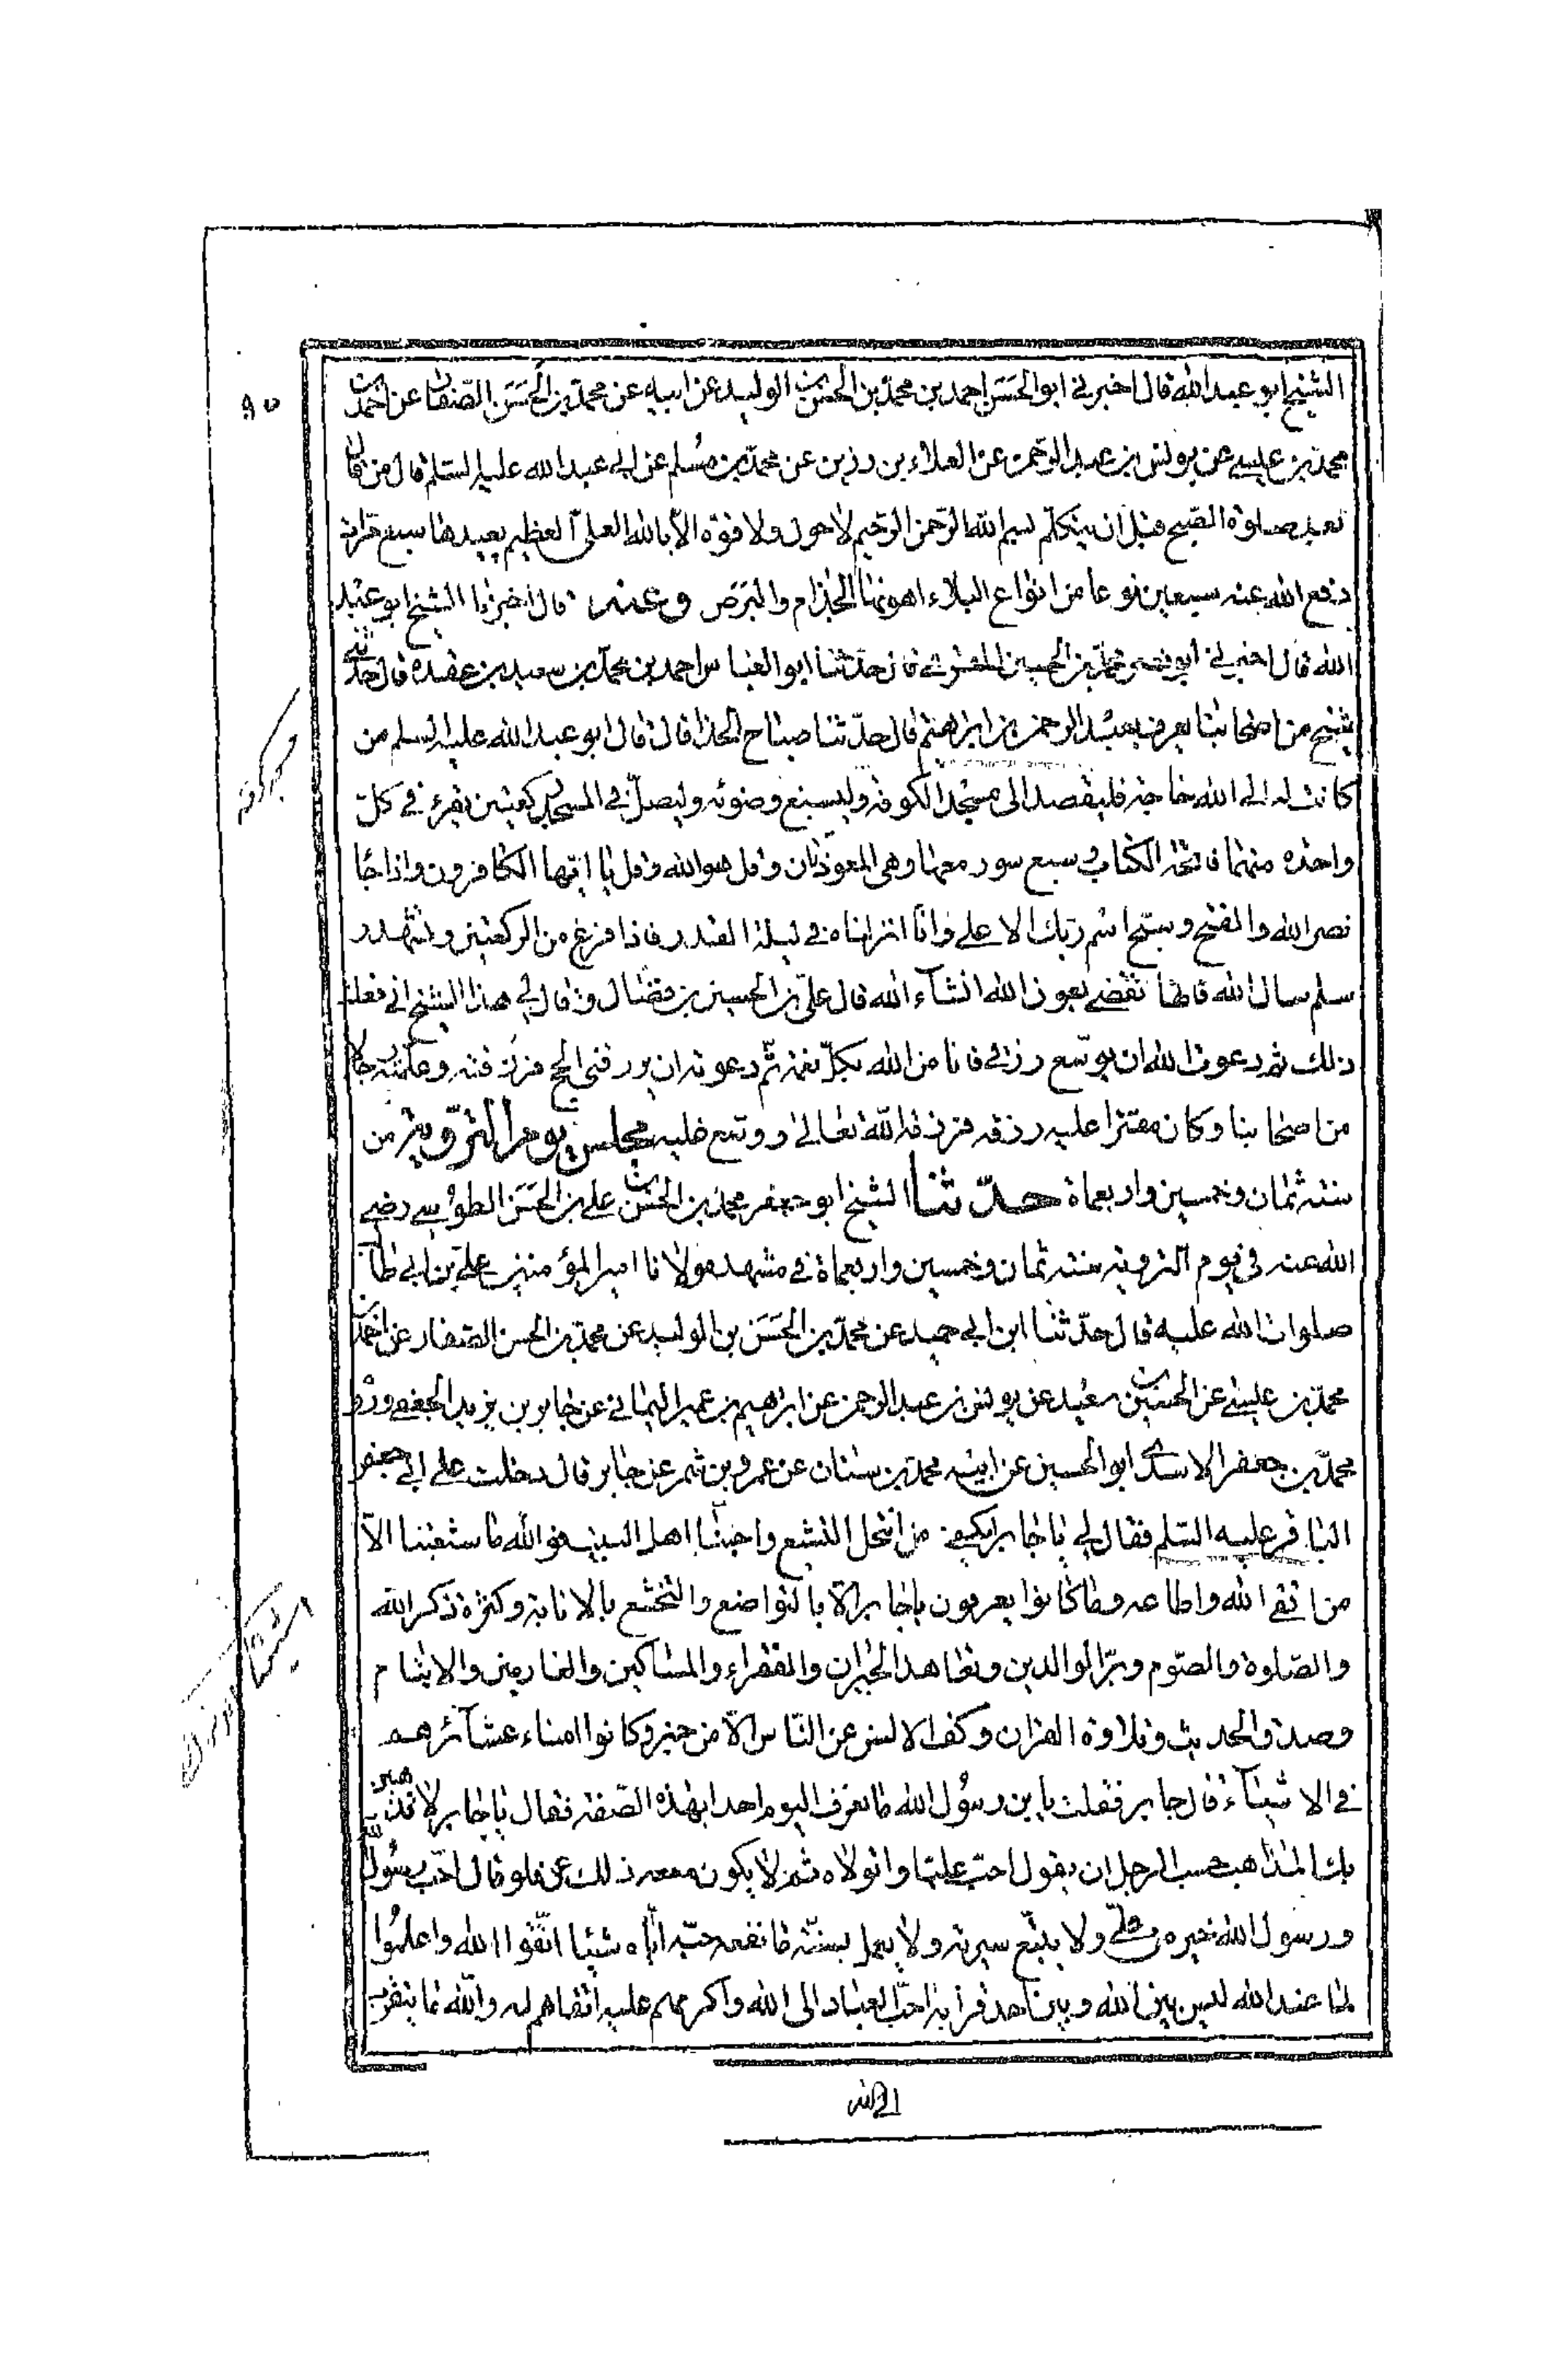 الشيخ ابو عبد الله قال اخبرني ابو الحسن احمد بن محمد بن الحسن بن الوليد عن ابيه عن محمد بن الحسن الصفار عن احمد بن
محمد بن عيسى عن يونس بن عبد الرحمن عن العلاء بن رزين عن محمد بن مسلم عن ابي عبد الله عليه السلم قال من قال
بعد صلوة الصبح قبل ان يتكلم بسم الله الرحمن الرحيم لا حول ولا قوة الا بالله العلي العظيم يعيدها سبع مرات
دفع الله عنه سبعين نوعا من انواع البلاء اهونها الجذام والبرص وعنه قال اخبرنا الشيخ ابو عبد
الله قال اخبرني ابو نصر محمد بن الحسين المقري قال حدثنا ابو العباس احمد بن محمد بن سعيد بن عقدة قال حدثني
شيخ من اصحابنا يعرف بعبد الرحمن بن ابراهيم قال حدثنا صباح الحذا قال قال ابو عبد الله عليه السلم من
كانت له الى الله حاجة فليقصد الى مسجد الكوفة وليسبغ وضوئه وليصل في المسجد ركعتين يقرء في كل
واحدة منهما فاتحة الكتاب و سبع سور معها وهي المعوذتان وقل هو الله وقل يا ايها الكافرون واذا جا
نصر الله والفتح وسبح اسم ربك الاعلى وانا انزلناه في ليلة القدر فاذا فرغ من الركعتين وتشهد و
سلم سال الله فانها تقضى بعون الله انشآء الله قال علي بن الحسين بن فضال وقال لي هذا الشيخ اني فعلت
ذلك ثم دعوت الله ان يوسع رزقي فانا من الله بكل نعمة ثم دعوته ان يرزقني الحج فرزقنيه وعلمته رجلا
من اصحابنا وكان مقترا عليه رزقه فرزقه الله تعالى ووسع عليه مجلس يوم التروية من
سنة ثمان وخمسين واربعماة حدثنا الشيخ ابو جعفر محمد بن الحسن بن علي بن الحسن الطوسي رضي
الله عنه في يوم التروية سنة ثمان وخمسين واربعماة في مشهد مولانا امير المؤمنين علي بن ابي طالب
صلوات الله عليه قال حدثنا ابن ابي حميد عن محمد بن الحسن بن الوليد عن محمد بن الحسن الصفار عن احمد بن
محمد بن عيسى عن الحسين بن سعيد عن يونس بن عبد الرحمن عن ابرهيم بن عمير اليماني عن جابر بن يزيد الجعفي وروى
محمد بن جعفر الاسدي ابو الحسين عن ابيه محمد بن سنان عن عمرو بن شمر عن جابر قال دخلت على ابي جعفر
الباقر عليه السلم فقال لي يا جابر ايكتفي من انتحل التشيع واحبنا اهل البيت فوالله ما شيعتنا الا
من اتقى الله واطاعه وما كانوا يعرفون يا جابر الا بالتواضع والتخشع بالانابة وكثرة ذكر الله
والصلوة والصوم وبر الوالدين وتعاهد الجيران والفقراء والمساكين والغارمين والايتام
وصدق الحديث وتلاوة القران وكف الالسن عن الناس الا من خير وكانوا امناء عشآئرهم
في الاشيآء قال جابر فقلت يا بن رسول الله ما نعرف اليوم احدا بهذه الصفة فقال يا جابر لا تذهبن
بك المذاهب حسب الرجل ان يقول احب عليا واتولاه ثم لا يكون مع ذلك فلو قال احب رسول الله
ورسول الله خير من علي ولا يتبع سيرته ولا يعمل بسنته ما نفعه حبه اياه شيئا اتقوا الله واعلموا
لما عند الله ليس بين الله وبين احد قرابة احب العباد الى الله واكرمهم عليه اتقاهم له والله ما يتقرب
الى الله